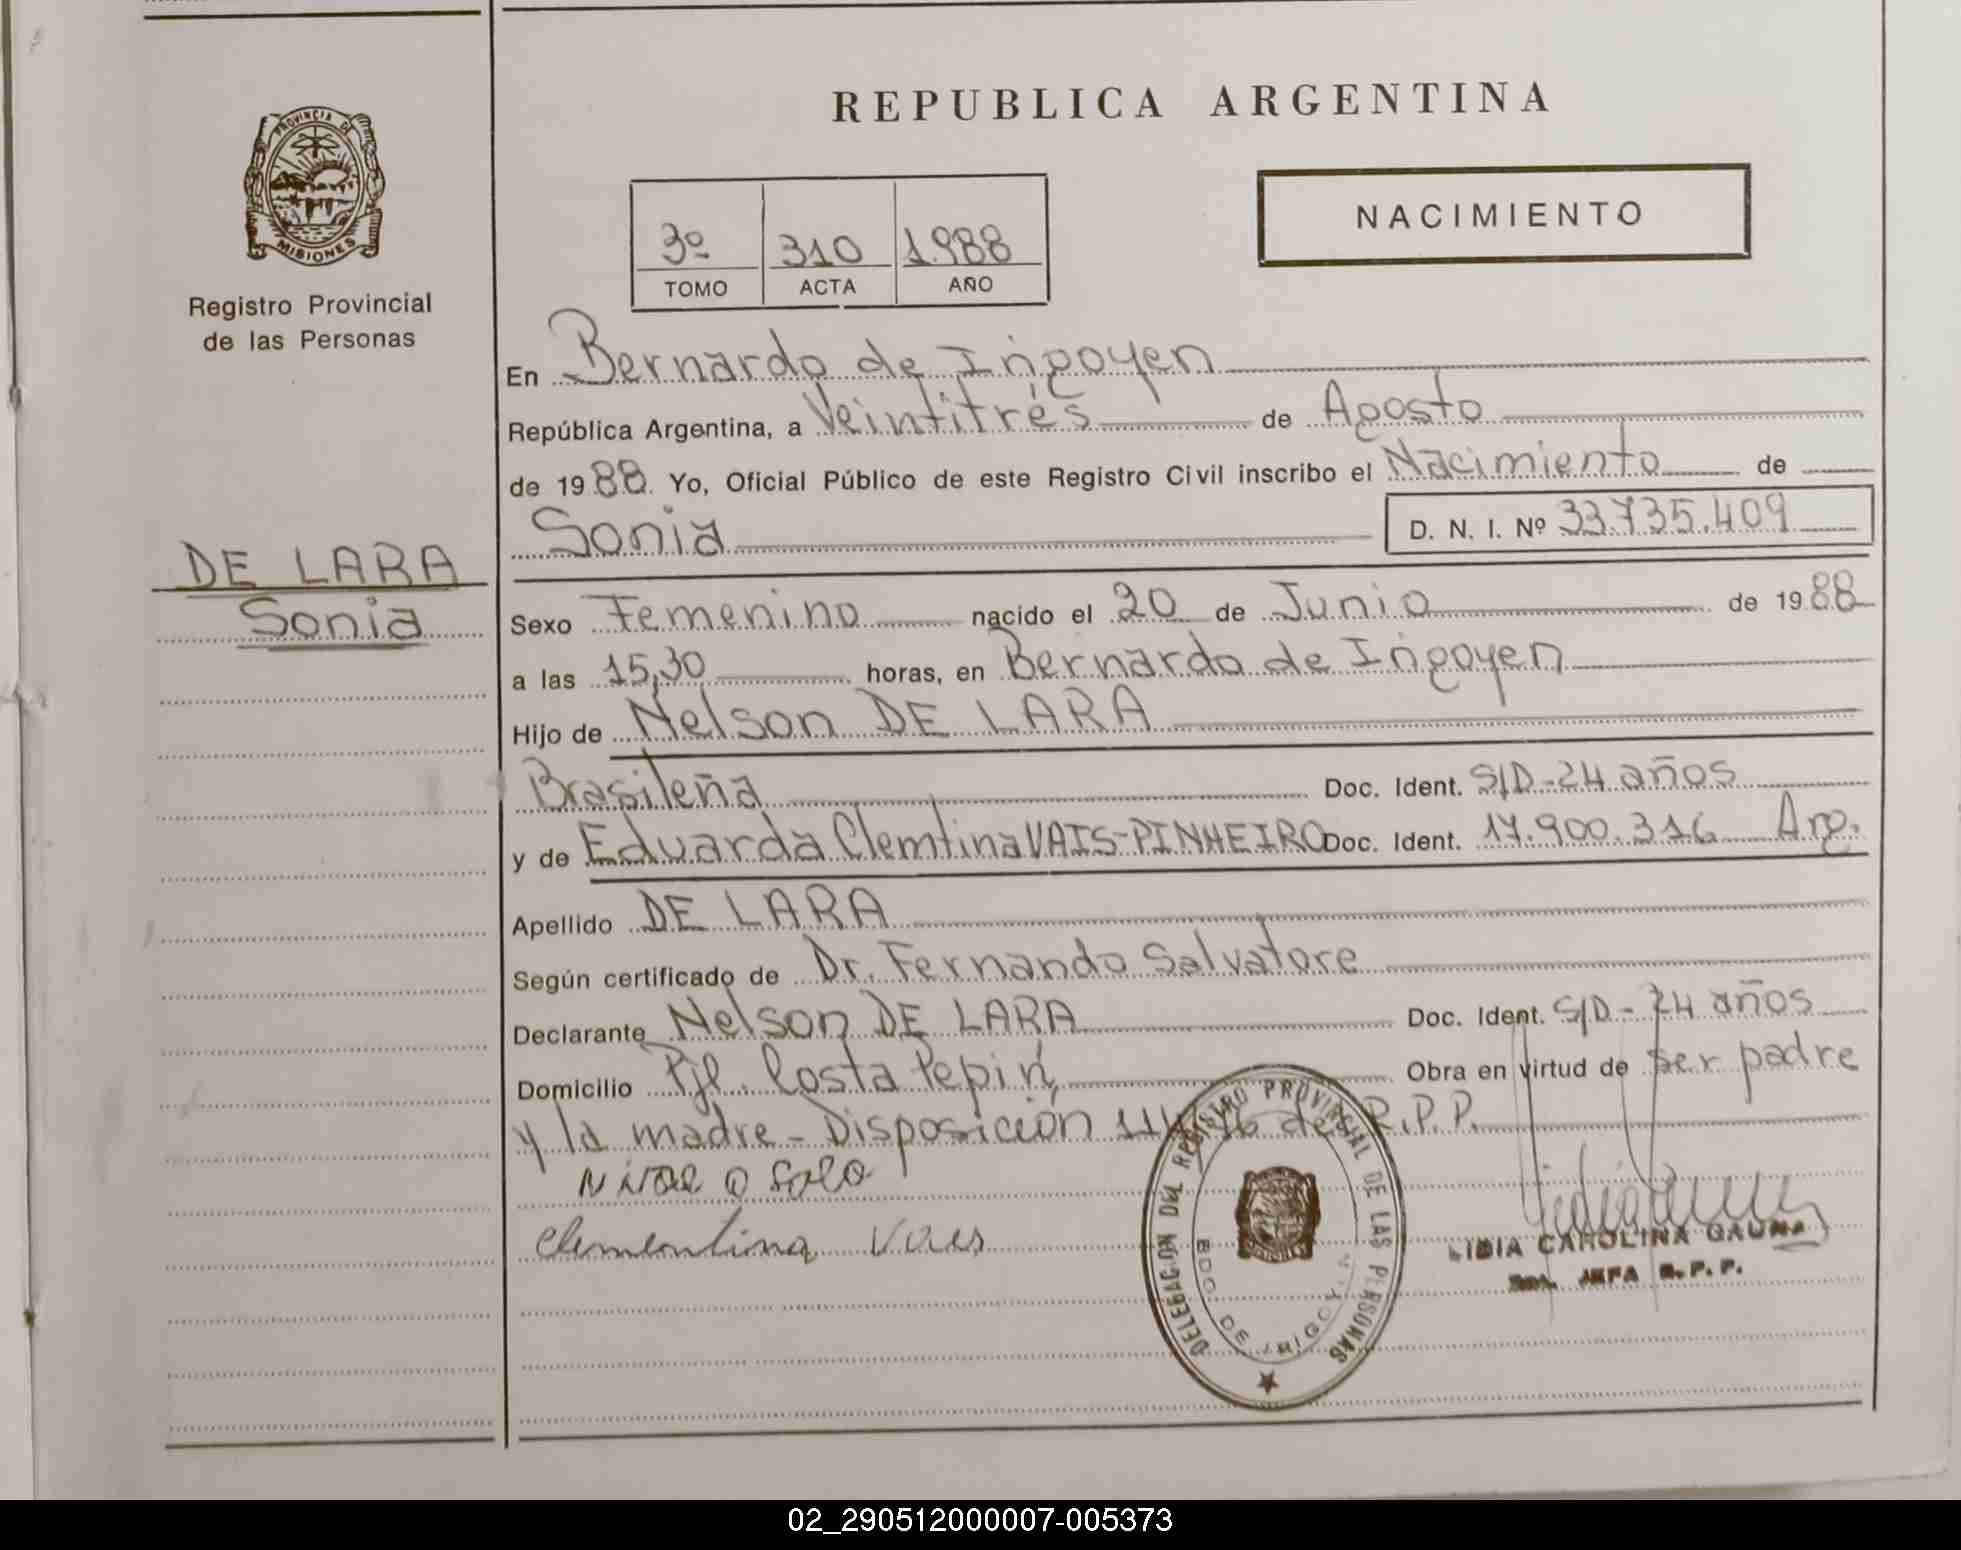 REPUBLICA ARGENTINA
PROVINCIA DE MISIONES
Registro Provincial
de las Personas
3º 310 1.988
TOMO ACTA AÑO
NACIMIENTO
En Bernardo de Irigoyen
República Argentina, a Veintitrés de Agosto
de 1988. Yo, Oficial Público de este Registro Civil inscribo el Nacimiento de
Sonia D. N. I. Nº 33.735.409
DE LARA
Sonia
Sexo Femenino nacido el 20 de Junio de 1988
a las 15,30 horas, en Bernardo de Irigoyen
Hijo de Nelson DE LARA
Brasileña Doc. Ident. S/D-24 años
y de Eduarda Clemtina VAIS-PINHEIRO Doc. Ident. 17.900.316 Arg.
Apellido DE LARA
Según certificado de Dr. Fernando Salvatore
Declarante Nelson DE LARA Doc. Ident. S/D-24 años
Domicilio Pje. Rosta Pepirí, Obra en virtud de ser padre
y la madre - Disposición de R.P.P.
clementina Vais
DELEGACION DEL REGISTRO PROVINCIAL DE LAS PERSONAS
BDO DE IRIGOYEN
LIDIA CAROLINA GAUNA
JEFA R.P.P.
02_290512000007-005373